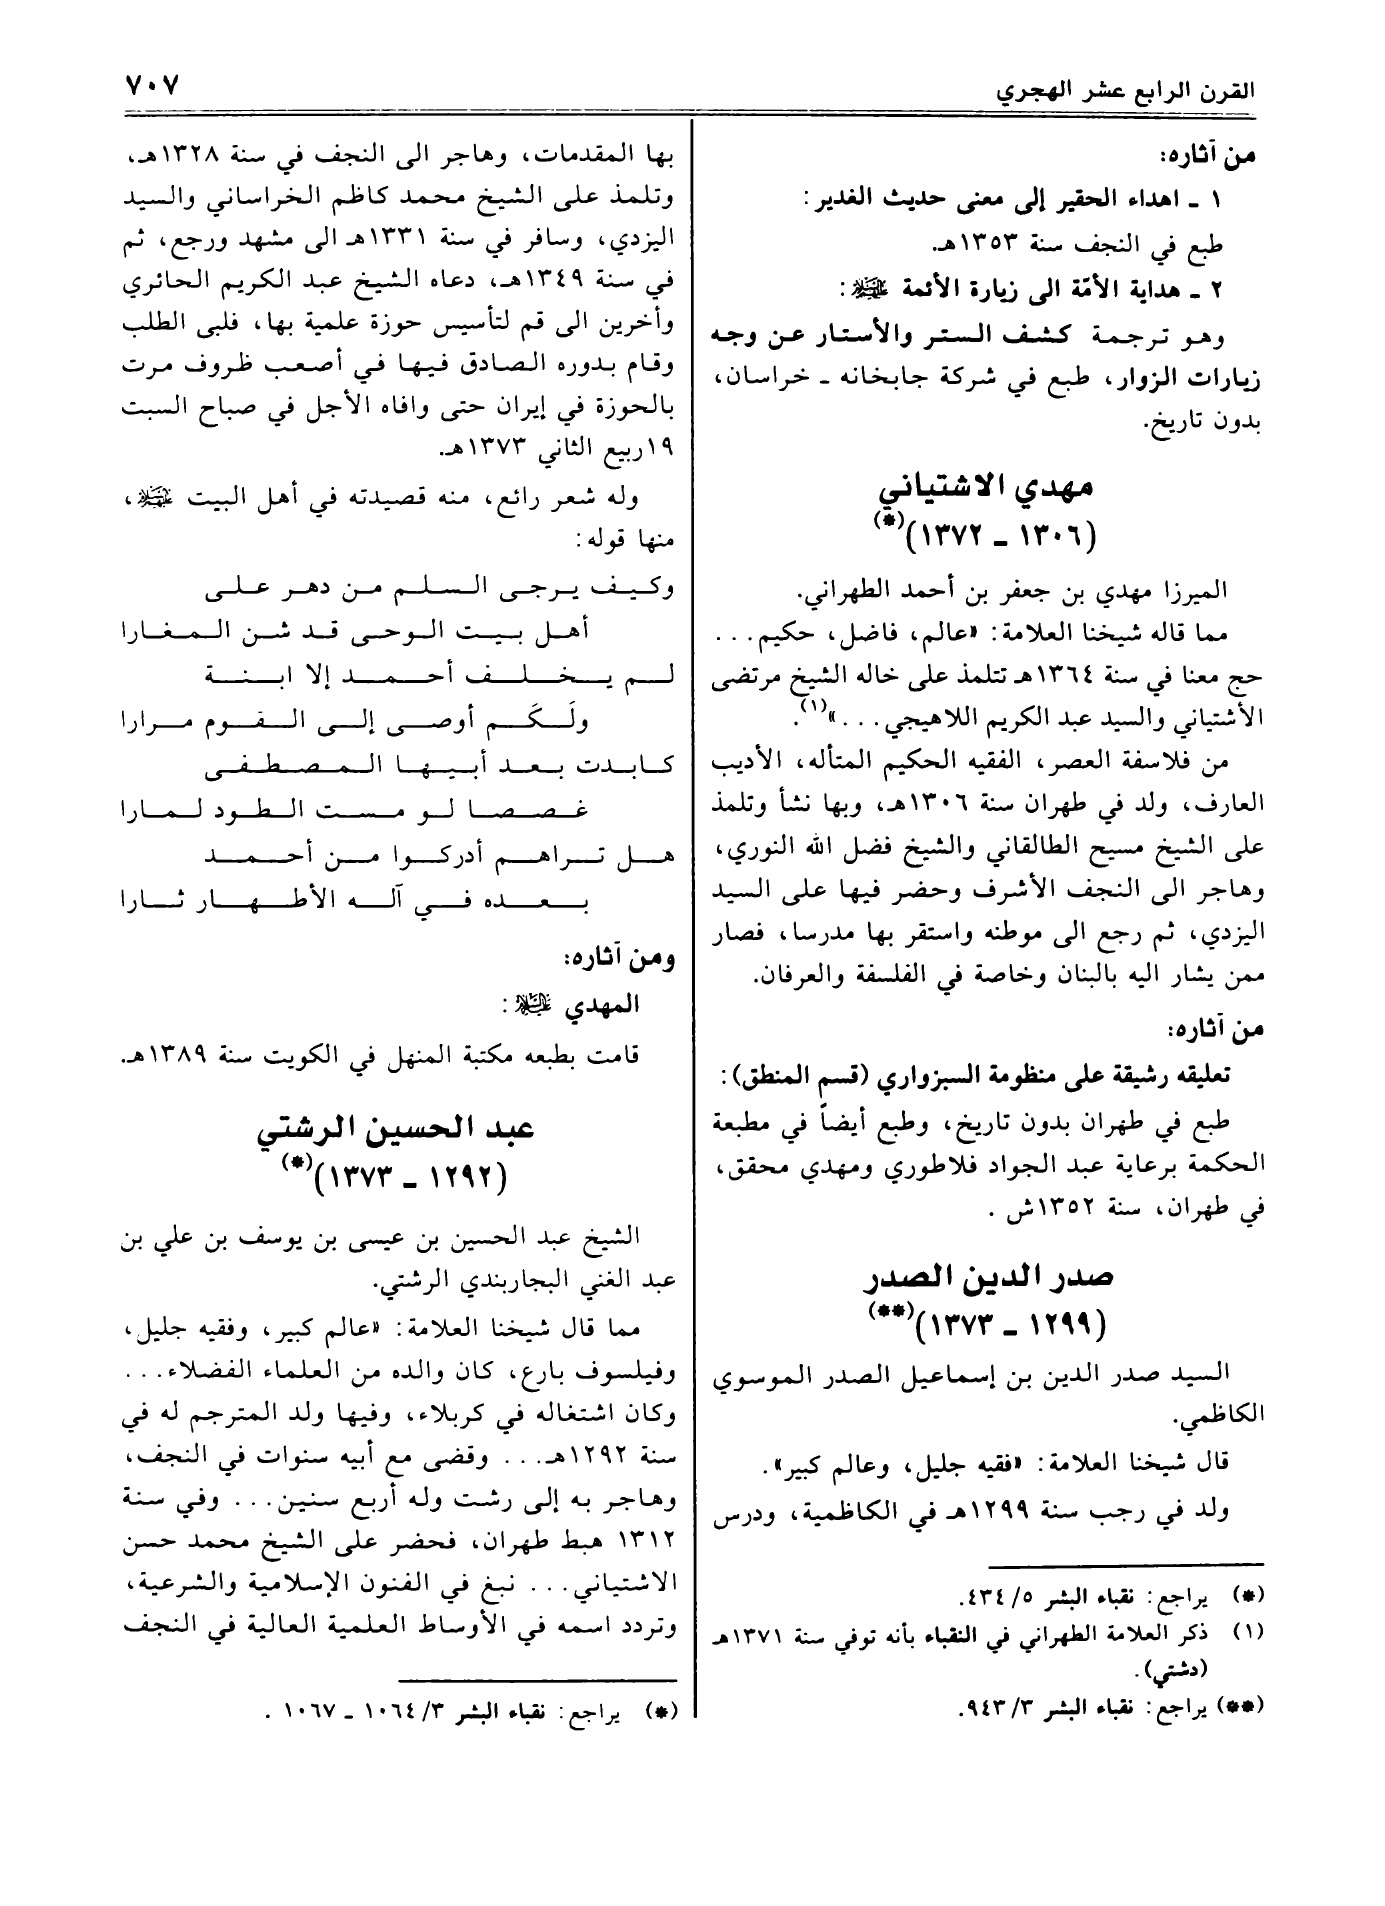 القرن الرابع عشر الهجري
٧٠٧
من آثاره:
١ ـ اهداء الحقير إلى معنى حديث الغدير:
طبع في النجف سنة ١٣٥٣هـ.
٢ ـ هداية الأمّة الى زيارة الأئمة :
وهو ترجمة كشف الستر والأستار عن وجه
زيارات الزوار، طبع في شركة جابخانه ـ خراسان،
بدون تاريخ.
مهدي الاشتياني
(١٣٠٦ ـ ١٣٧٢)(*)
الميرزا مهدي بن جعفر بن أحمد الطهراني.
مما قاله شيخنا العلامة: «عالم، فاضل، حكيم...
حج معنا في سنة ١٣٦٤هـ تتلمذ على خاله الشيخ مرتضى
الأشتياني والسيد عبد الكريم اللاهيجي...»(١).
من فلاسفة العصر، الفقيه الحكيم المتأله، الأديب
العارف، ولد في طهران سنة ١٣٠٦هـ، وبها نشأ وتلمذ
على الشيخ مسيح الطالقاني والشيخ فضل الله النوري،
وهاجر الى النجف الأشرف وحضر فيها على السيد
اليزدي، ثم رجع الى موطنه واستقر بها مدرسا، فصار
ممن يشار اليه بالبنان وخاصة في الفلسفة والعرفان.
من آثاره:
تعليقه رشيقة على منظومة السبزواري (قسم المنطق):
طبع في طهران بدون تاريخ، وطبع أيضاً في مطبعة
الحكمة برعاية عبد الجواد فلاطوري ومهدي محقق،
في طهران، سنة ١٣٥٢ش .
صدر الدين الصدر
(١٢٩٩ ـ ١٣٧٣)(**)
السيد صدر الدين بن إسماعيل الصدر الموسوي
الكاظمي.
قال شيخنا العلامة: «فقيه جليل، وعالم كبير».
ولد في رجب سنة ١٢٩٩هـ في الكاظمية، ودرس
(*) يراجع: نقباء البشر ٥/ ٤٣٤.
(١) ذكر العلامة الطهراني في النقباء بأنه توفي سنة ١٣٧١هـ
(دشتي).
(**) يراجع: نقباء البشر ٣/ ٩٤٣.
بها المقدمات، وهاجر الى النجف في سنة ١٣٢٨هـ،
وتلمذ على الشيخ محمد كاظم الخراساني والسيد
اليزدي، وسافر في سنة ١٣٣١هـ الى مشهد ورجع، ثم
في سنة ١٣٤٩هـ، دعاه الشيخ عبد الكريم الحائري
وأخرين الى قم لتأسيس حوزة علمية بها، فلبى الطلب
وقام بدوره الصادق فيها في أصعب ظروف مرت
بالحوزة في إيران حتى وافاه الأجل في صباح السبت
١٩ربيع الثاني ١٣٧٣هـ.
وله شعر رائع، منه قصيدته في أهل البيت ،
منها قوله:
وكيف يرجى السلم من دهر على
أهل بيت الوحى قد شن المغارا
لم يخلف أحمد إلا ابنة
ولَكَم أوصى إلى القوم مرارا
كابدت بعد أبيها المصطفى
غصصا لو مست الطود لمارا
هل تراهم أدركوا من أحمد
بعده في آله الأطهار ثارا
ومن آثاره:
المهدي :
قامت بطبعه مكتبة المنهل في الكويت سنة ١٣٨٩هـ.
عبد الحسين الرشتي
(١٢٩٢ ـ ١٣٧٣)(*)
الشيخ عبد الحسين بن عيسى بن يوسف بن علي بن
عبد الغني البجاربندي الرشتي.
مما قال شيخنا العلامة: «عالم كبير، وفقيه جليل،
وفيلسوف بارع، كان والده من العلماء الفضلاء...
وكان اشتغاله في كربلاء، وفيها ولد المترجم له في
سنة ١٢٩٢هـ... وقضى مع أبيه سنوات في النجف،
وهاجر به إلى رشت وله أربع سنين... وفي سنة
١٣١٢ هبط طهران، فحضر على الشيخ محمد حسن
الاشتياني... نبغ في الفنون الإسلامية والشرعية،
وتردد اسمه في الأوساط العلمية العالية في النجف
(*) يراجع: نقباء البشر ٣/ ١٠٦٤ ـ ١٠٦٧ .